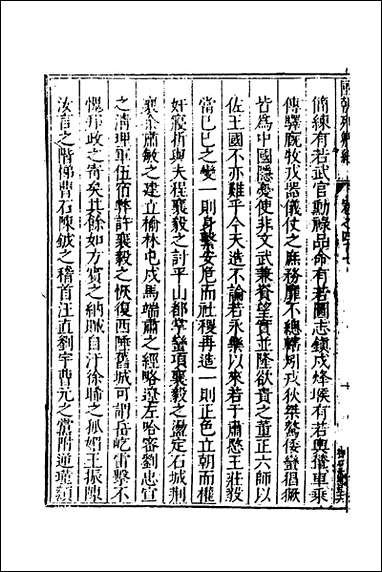 簡練有若武官勳祿品命有若圖志鎮戍烽堠有若輿輦車乘
傳驛廐牧戎器儀仗之庶務靡不總轄矧戎狄桀驁倭蠻猖獗
皆爲中國隱憂使非文武兼資望實並隆欲責之董正六師以
佐王國不亦難乎今天造不論若永樂以來若于肅愍王莊毅
當己巳之變一則身繫安危而社稷再造一則正色立朝而權
奸寢折與夫程襄毅之討平山都掌蠻項襄毅之盪定石城荆
襄余肅敏之建立榆林屯戍馬端肅之經略遼左哈密劉忠宣
之清理軍伍宿弊許襄毅之恢復西陲舊城可謂岳屹雷擊不
愧邦政之寄矣其餘如方賓之納賕自汙徐晞之狐媚王振陳
汝言之階佛曹石陳鉞之稽首汪直劉宇曹元之黨附逆瑾